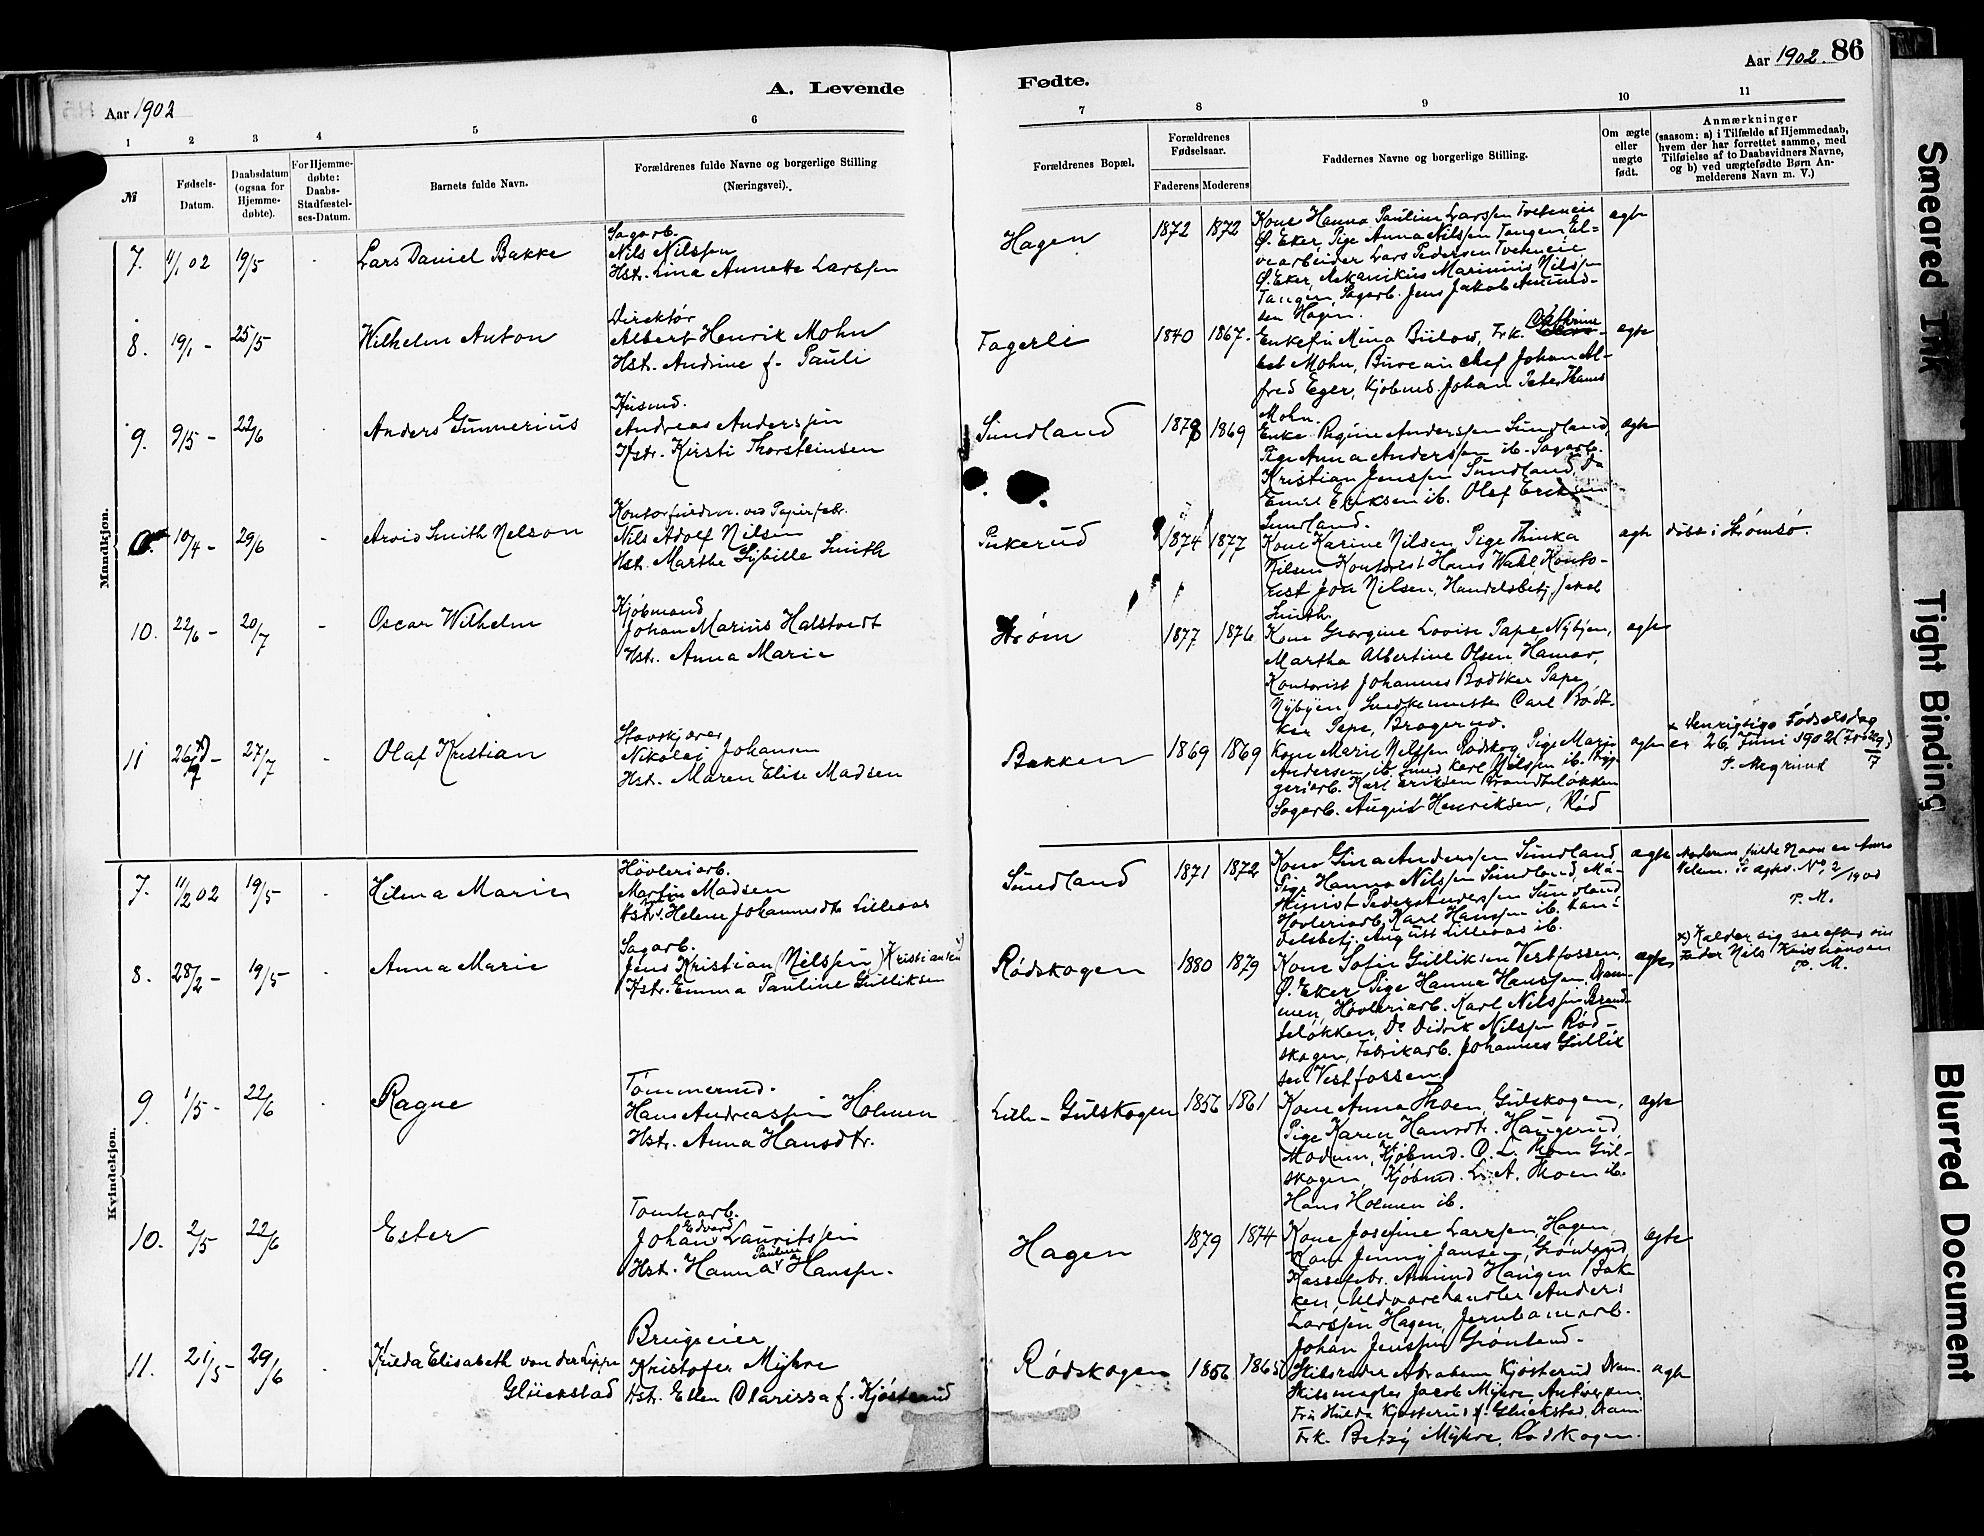 86
Aar 1902.
A. Levende
Fødte.
Aar 1902
1 2 3 4 5 6
7 8 9 10 11
№
Fødsels-
Datum.
Daabsdatum
(ogsaa for
Hjemme-
døbte).
For Hjemme-
døbte:
Daabs-
Stadfæstel-
ses-Datum.
Barnets fulde Navn.
Forældrenes fulde Navne og borgerlige Stilling
(Næringsvei).
Forældrenes Bopæl.
Forældrenes
Fødselsaar.
Faderens Moderens
Faddernes Navne og borgerlige Stilling.
Om ægte
eller
uægte
født.
Anmærkninger
(saasom: a) i Tilfælde af Hjemmedaab,
hvem der har forrettet samme, med
Tilføielse af to Daabsvidners Navne,
og b) ved uægtefødte Børn An-
melderens Navn m. V.)
Mandkjøn.
7. 11/1 02 19/5 - Lars Daniel Bakke
Sagarb.
Nils Nilssen
Hst. Lina Annette Larssen
Hagen 1872 1872
Kone Hanna Pauline Larssen Tveteneie
Ø. Eker, Pige Anna Nilssen Tangen El-
vearbeider Lars Pedersen Tveteneie
Ø. Eker, Mekanikus Marinius Nilssen
Tangen, Sagarb. Jens Jakob Amund-
sen Hagen.
ægte
8. 19/1 - 25/5 Wilhelm Anton
Direktør
Albert Henrik Mohn
Hst. Andrine f. Pauli
Fagerli 1840 1867.
Enkefru Mina Bülow, Frk. Cathrine
Mohn, Bureauchef Johan Al-
fred Eger, Kjøbmd. Johan Peter Thams
Mohn.
ægte
9. 9/5 - 22/6 Anders Gunnerius
Husmd.
Andreas Anderssen
Hstr. Kirsti Thorsteinsen
Sundland 1878 1869
Enke Regine Anderssen Sundland,
Pige Anna Anderssen ib. Sagarb.
Kristian Jenssen Sundland, Do
Emil Eriksen ib. Olaf Eriksen
Sundland.
ægte
10/4 - 29/6 - Arvid Smith Nelson
Kontorfuldm. ved Papirfabr.
Nils Adolf Nilsen
Hst. Marthe Sybille Smith
Pukerud 1874 1877
Kone Karine Nilsen Pige Thinka
Nilsen Kontorist Hans Wahl Konto-
rist Jon Nilsen, Handelsbetj. Jakob
Smith.
ægte døbt i Strømsø.
10. 22/6 - 20/7 - Oscar Wilhelm
Kjøbmand
Johan Marius Halstvedt
Hst. Anna Marie
Strøm 1877 1876
Kone Georgine Lovise Pape, Nybyen,
Martha Albertine Olsen, Hamar,
Kontorist Johannes Bødtker Pape
Nybyen Snedkermester Carl Bødt-
ker Pape, Bragernes.
ægte
11 26/7 - 27/7 Olaf Kristian
Stavskjærer
Nikolai Johansen
Hst. Maren Elise Madsen
Bakken 1869 1869
Kone Marie Nilssen Rødskog, Pige Marie
Andersen ib. Smed Karl Nilssen ib. Brygg-
geriarb. Karl Eriksen Brandtsløkken
Sagarb. August Henriksen, Rød
ægte
x Den rigtige Fødselsdag
er 26. Juni 1902
P. Megrund
Kvindekjøn.
7. 11/2 02 19/5 - Hilma Marie
Høvleriarb.
Martin Madsen
Hstr. Helene Johannesdtr Lilleaas
Sundland 1871 1872
Kone Gina Anderssen Sundland,
Pige Hanna Nilssen Sundland, Ma-
skinist Peder Anderssen Sundland
Høvleriarb. Karl Hanssen ib. Han-
delsbetj. August Lilleaas ib.
ægte
Moderens fulde Navn er Anne
Helene
P. M.
8. 28/2 - 19/5 - Anna Marie
Sagarb.
Jens Kristian (Nilssen) Kristiansen x)
Hstr. Emma Pauline Gulliksen
Rødskogen 1880 1879
Kone Sofie Gulliksen Vestfossen,
Ø. Eker Pige Hanna Hanssen, Dram-
men, Høvleriarb. Karl Nilssen Brand-
sløkken, Do Didrik Nilssen Rød-
skogen, Fabrikarb. Johannes Gullik
sen Vestfossen
ægte
x) Kalder sig saa efter sin
Fader Nils Kristiansen
P. M.
9. 1/5 - 22/6 - Ragne
Tømmermd.
Hans Andreassen Holmen
Hst. Anna Hansdtr.
Lille-Gulskogen 1856 1861
Kone Anna Thoen, Gulskogen,
Pige Karen Hansdtr. Haugerud,
Modum, Kjøbmd. O. L. Thoen Gul-
skogen, Kjøbmd. L. A. Thoen ib.
Hans Holmen ib.
ægte
10. 2/5 22/6 - Ester
Tomtearb.
Johan Edvard Lauritssen
Hst. Hanna Pauline Hanssen.
Hagen 1879 1874
Kone Josefine Larssen, Hagen,
Kone Jenny Jansen, Grønland,
Kassefabr. Amund Haugen Bak-
ken, Uldvarehandler Anders
Larssen Hagen, Jernbanearb.
Johan Jenssen Grønland.
ægte
11. 21/5 - 29/6 - Hulda Elisabeth von der Lippe
Glückstad
Brugseier
Kristofer Myhre
Hstr. Ellen Clarissa f. Kjøsterud
Rødskogen 1856 1865
Skibsreder Abraham Kjøsterud Dram.
Skibsmægler Jacob Myhre Antwerpen,
Fru Hulda Kjøsterud f. Glückstad, Dram.
Frk. Betzy Myhre, Rødskogen.
ægte
Smeared Ink
Tight Binding
Blurred Document